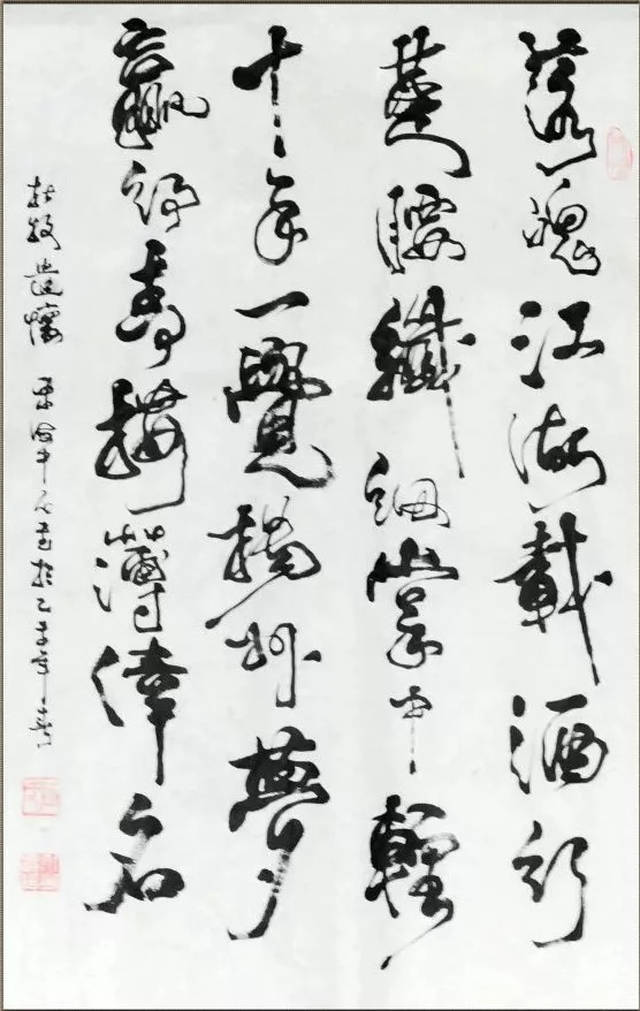 落魄江湖載酒行
楚腰纖細掌中輕
十年一覺揚州夢
贏得青樓薄倖名
杜牧遣懷 書於乙未年春